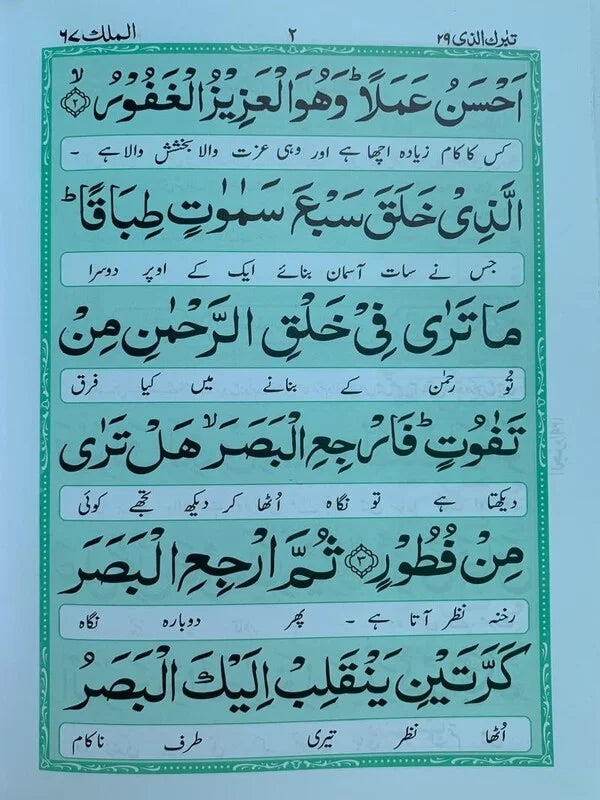 تبٰرك الذی ۲۹ ۲ الملك ۶۷
اَحْسَنُ عَمَلًا ؕ وَهُوَ الْعَزِيْزُ الْغَفُوْرُ ۙ ﴿۲﴾
کس کا کام زیادہ اچھا ہے اور وہی عزت والا بخشش والا ہے ۔
الَّذِیْ خَلَقَ سَبْعَ سَمٰوٰتٍ طِبَاقًا ؕ
جس نے سات آسمان بنائے ایک کے اوپر دوسرا
مَا تَرٰی فِیْ خَلْقِ الرَّحْمٰنِ مِنْ
تُو رحمٰن کے بنانے میں کیا فرق
تَفٰوُتٍ ؕ فَارْجِعِ الْبَصَرَ ۙ هَلْ تَرٰی
دیکھتا ہے تو نگاہ اُٹھا کر دیکھ تجھے کوئی
مِنْ فُطُوْرٍ ﴿۳﴾ ثُمَّ ارْجِعِ الْبَصَرَ
رخنہ نظر آتا ہے ۔ پھر دوبارہ نگاہ
كَرَّتَيْنِ يَنْقَلِبْ اِلَيْكَ الْبَصَرُ
اُٹھا نظر تیری طرف ناکام